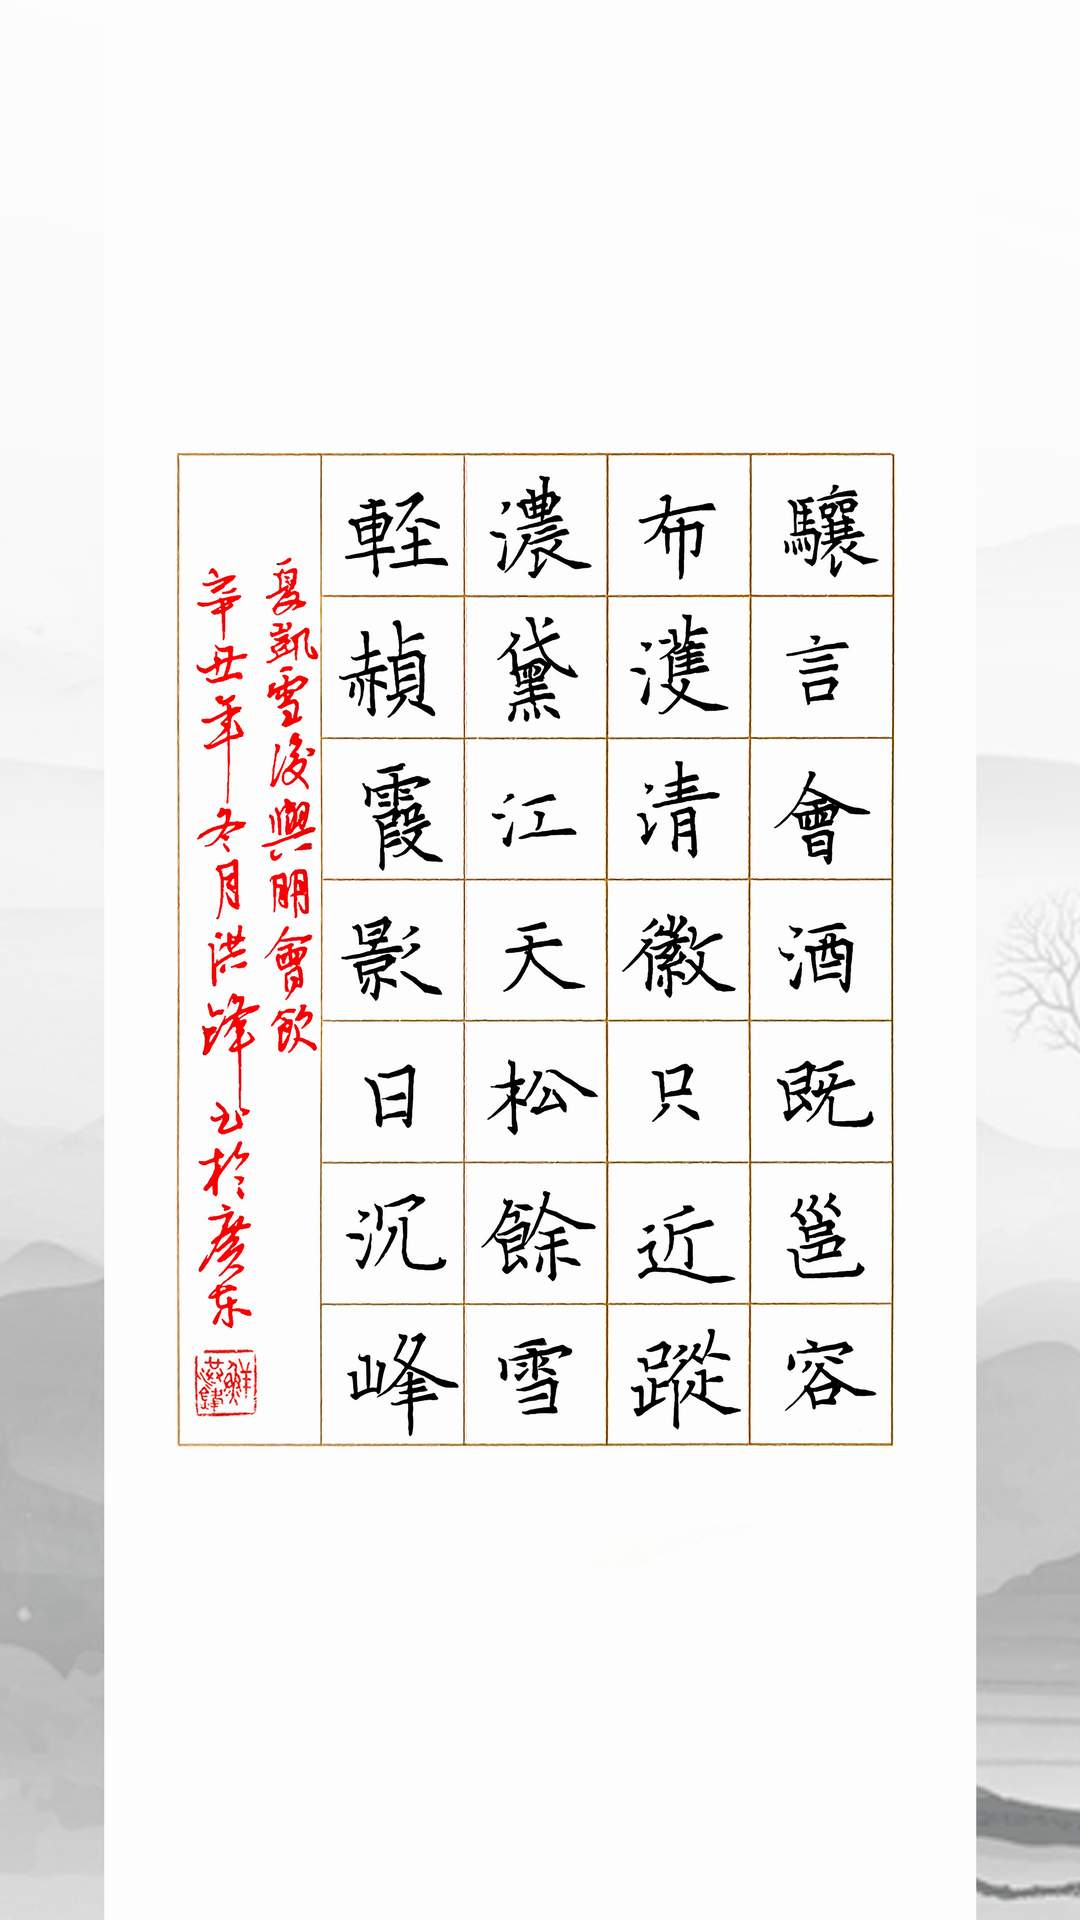 驤言會酒既邕容
布濩清徽只近蹤
濃黛江天松餘雪
輕赬霞影日沉峰
夏凱雪後與朋會飲
辛丑年冬月洪鋒书於廣东